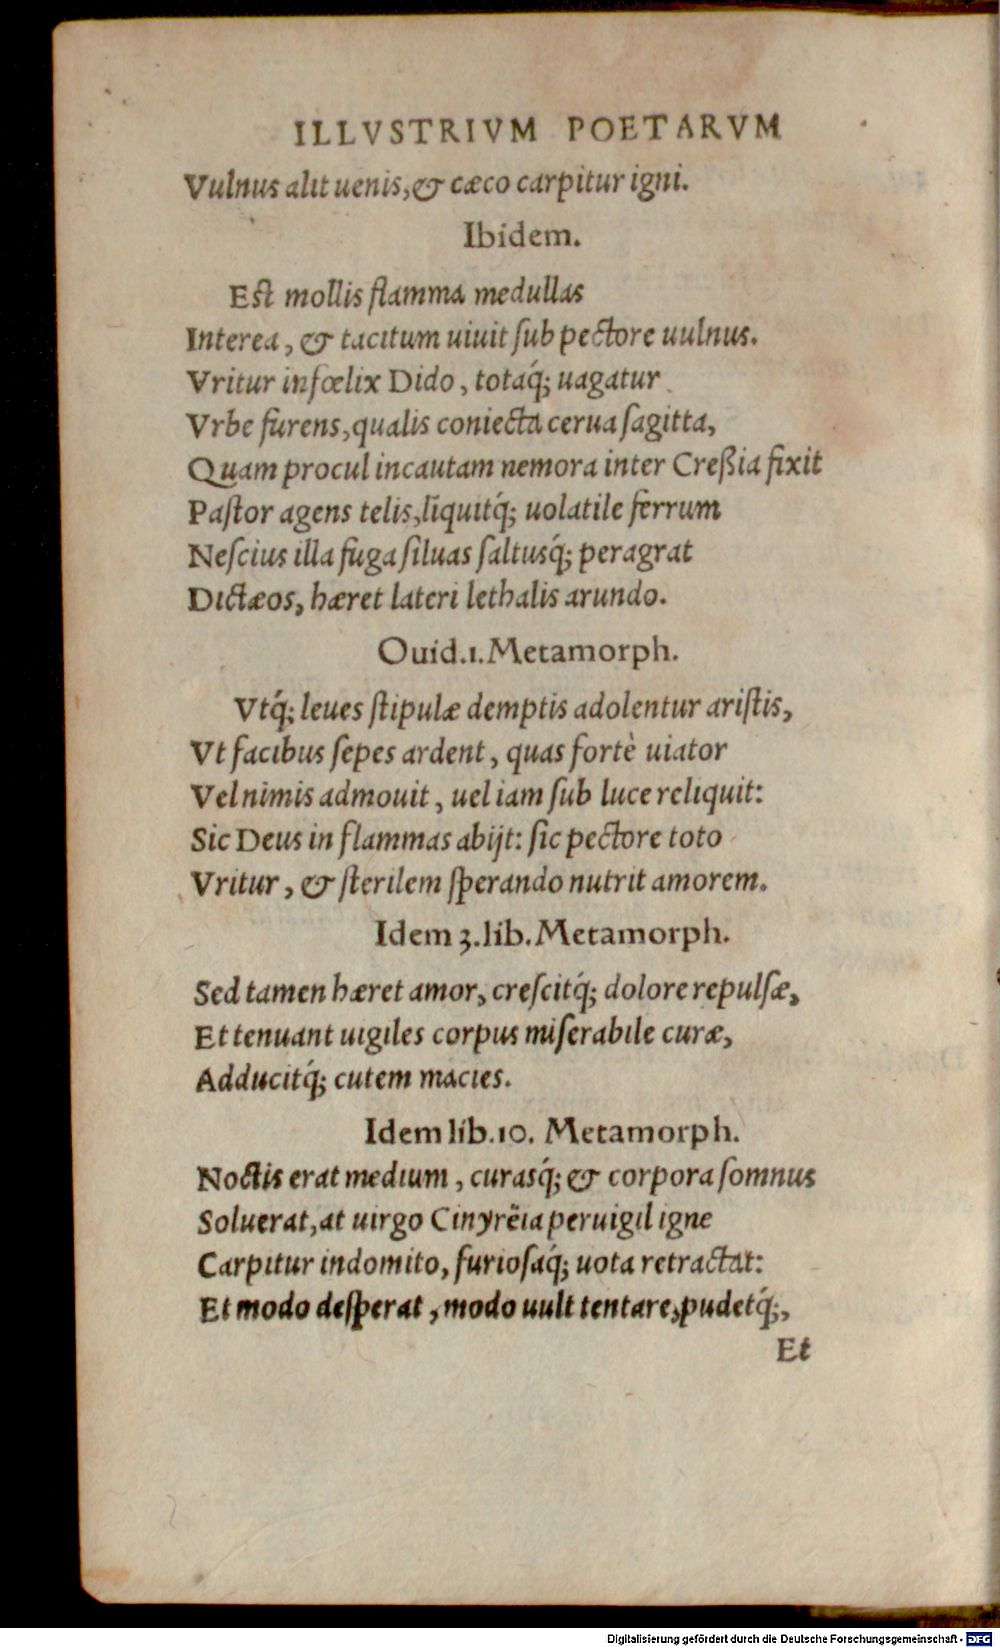 ILLVSTRIVM POETARVM
Vulnus alit uenis, & cæco carpitur igni.
Ibidem.
Est mollis flamma medullas
Interea, & tacitum uiuit ſub pectore uulnus.
Vritur infœlix Dido, totaq́; uagatur
Vrbe furens, qualis coniecta cerua ſagitta,
Quam procul incautam nemora inter Creßia fixit
Paſtor agens telis, liquitq́; uolatile ferrum
Neſcius illa fuga ſiluas ſaltusq́; peragrat
Dictæos, hæret lateri lethalis arundo.
Ouid.1.Metamorph.
Vtq́; leues ſtipulæ demptis adolentur ariſtis,
Vt facibus ſepes ardent, quas fortè uiator
Vel nimis admouit, uel iam ſub luce reliquit:
Sic Deus in flammas abijt: ſic pectore toto
Vritur, & ſterilem ſperando nutrit amorem.
Idem 3.lib.Metamorph.
Sed tamen hæret amor, creſcitq́; dolore repulſæ,
Et tenuant uigiles corpus miſerabile curæ,
Adducitq́; cutem macies.
Idem lib.10. Metamorph.
Noctis erat medium, curasq́; & corpora ſomnus
Soluerat, at uirgo Cinyrëia peruigil igne
Carpitur indomito, furioſaq́; uota retractat:
Et modo deſperat, modo uult tentare, pudetq́;,
Et
Digitalisierung gefördert durch die Deutsche Forschungsgemeinschaft - DFG